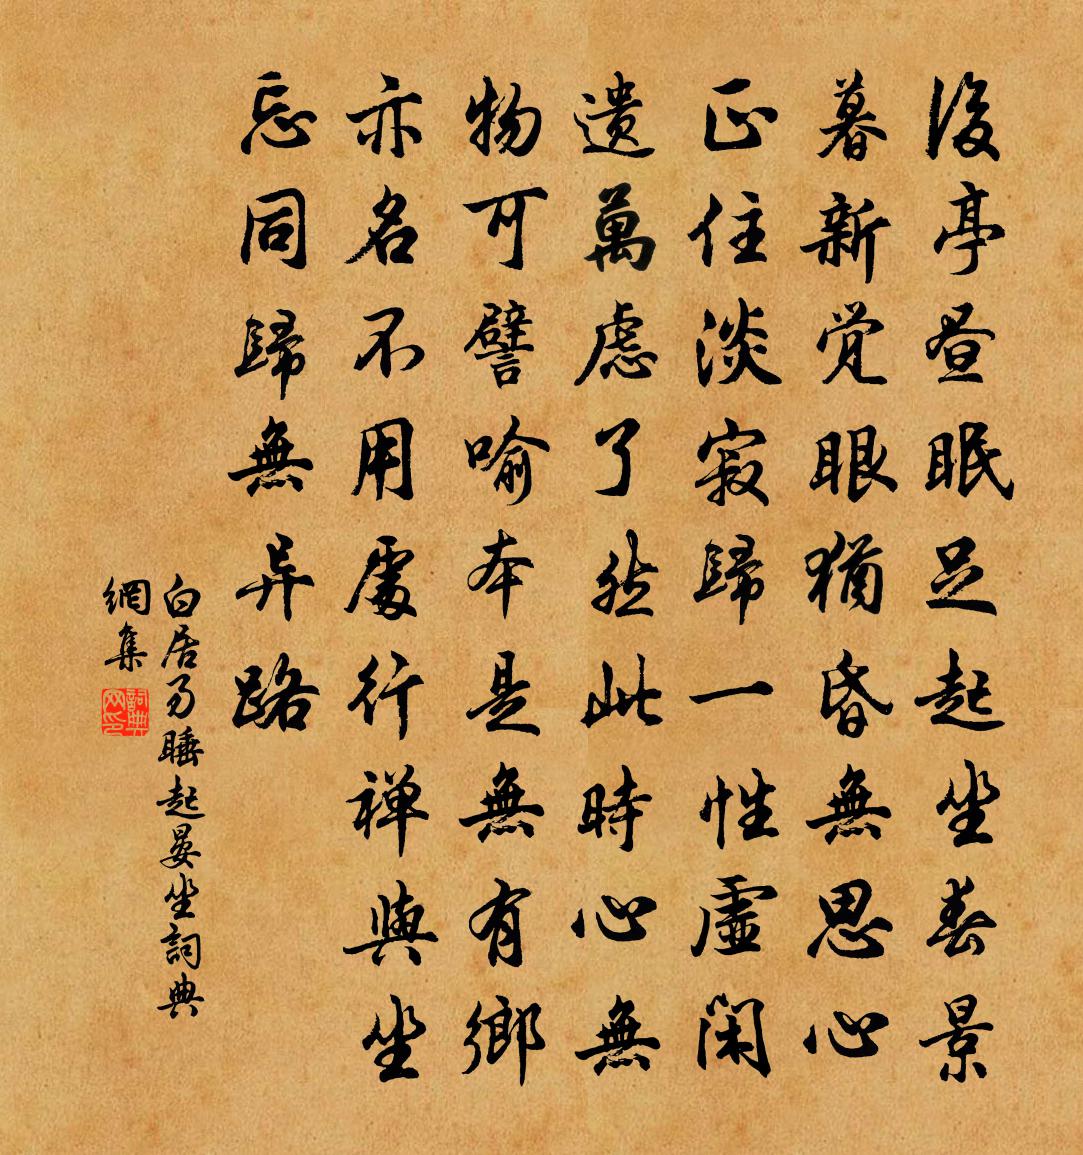 後亭昼眠足起坐春景
暮新觉眼猶昏無思心
正住淡寂歸一性虛闲
遗萬虑了然此時心無
物可譬喻本是無有鄉
亦名不用處行禅與坐
忘同歸無异路
白居易睡起晏坐詞典
網集
詞典网印